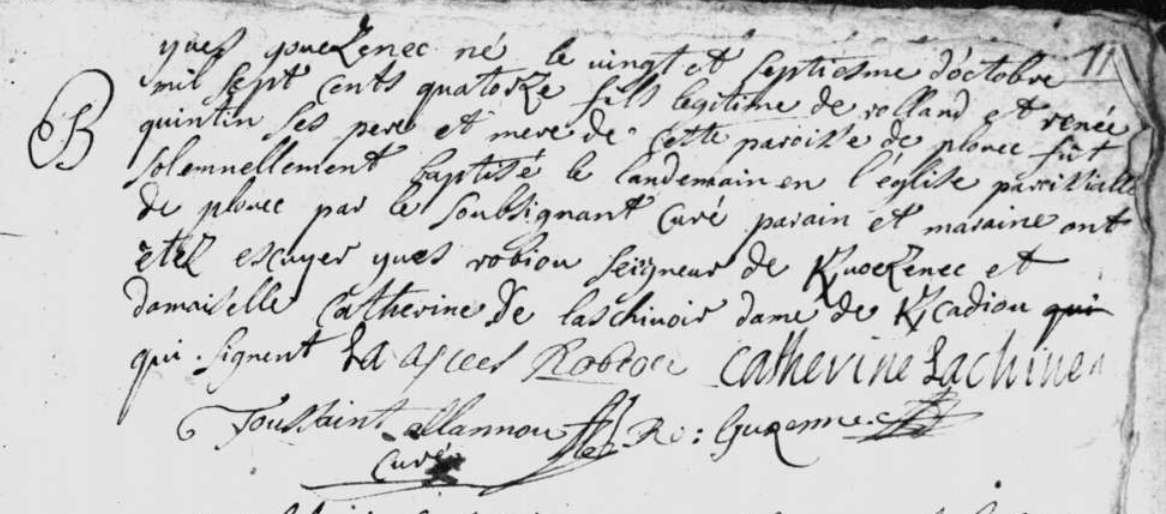 11
yves gouezenec né le vingt et septiesme d'octobre
B
mil sept cents quatorze fils legitime de rolland et renée
quintin ses pere et mere de cette paroisse de plouec fut
solemnellement baptisé le landemain en l'église paroissialle
de plouec par le soubsignant curé parain et maraine ont
etez escuyer yves robiou seigneur de et
damaiselle Catherine de dame de qui
qui signent Catherine
Toussaint allannou
curé